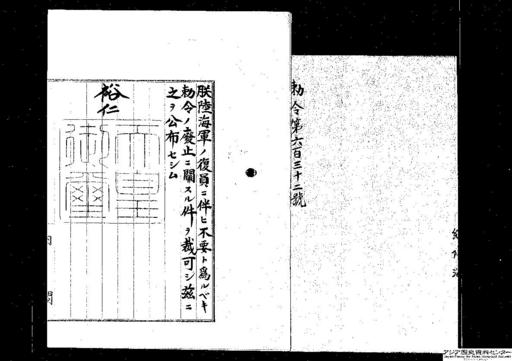 勅令第六百三十二號
朕陸海軍ノ復員ニ伴ヒ不要ト爲ルベキ
勅令ノ廢止ニ關スル件ヲ裁可シ茲ニ
之ヲ公布セシム
裕仁
天皇
御璽
内閣
アジア歴史資料センター